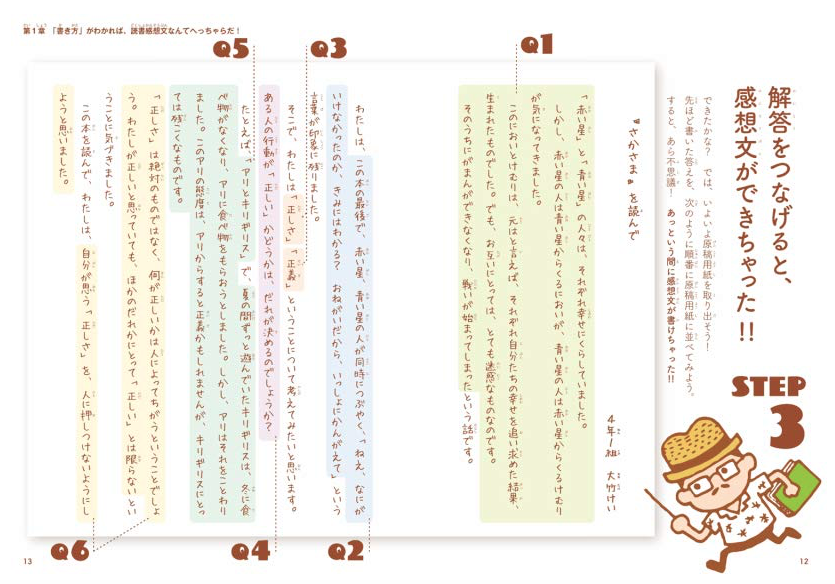 第1章 「書き方」がわかれば、読書感想文なんてへっちゃらだ！
解答をつなげると、
感想文ができちゃった!!
できたかな？ では、いよいよ原稿用紙を取り出そう！
先ほど書いた答えを、次のように順番に原稿用紙に並べてみよう。
すると、あら不思議！ あっという間に感想文が書けちゃった!!
STEP
3
Q1
Q3
Q5
『さかさま』を読んで
4年1組 大竹けい
「赤い星」と「青い星」の人々は、それぞれ幸せにくらしていました。
しかし、赤い星の人は青い星からくるにおいが、青い星の人は赤い星からくるけむり
が気になってきました。
このにおいとけむりは、元はと言えば、それぞれ自分たちの幸せを追い求めた結果、
生まれたものでした。でも、お互いにとっては、とても迷惑なものなのです。
そのうちにがまんができなくなり、戦いが始まってしまったという話です。
わたしは、この本の最後で、赤い星、青い星の人が同時につぶやく、「ねえ、なにが
いけなかったのか、きみにはわかる？ おねがいだから、いっしょにかんがえて」という
言葉が印象に残りました。
そこで、わたしは「正しさ」「正義」ということについて考えてみたいと思います。
ある人の行動が「正しい」かどうかは、だれが決めるのでしょうか？
たとえば、『アリとキリギリス』で、夏の間ずっと遊んでいたキリギリスは、冬に食
べ物がなくなり、アリに食べ物をもらおうとしました。しかし、アリはそれをことわり
ました。このアリの態度は、アリからすると正義かもしれませんが、キリギリスにとっ
ては残こくなものです。
「正しさ」は絶対のものではなく、何が正しいかは人によってちがうということでしょ
う。わたしが正しいと思っていても、ほかのだれかにとって「正しい」とは限らないとい
うことに気づきました。
この本を読んで、わたしは、自分が思う「正しさ」を、人に押しつけないようにし
ようと思いました。
Q2
Q4
Q6
12
13